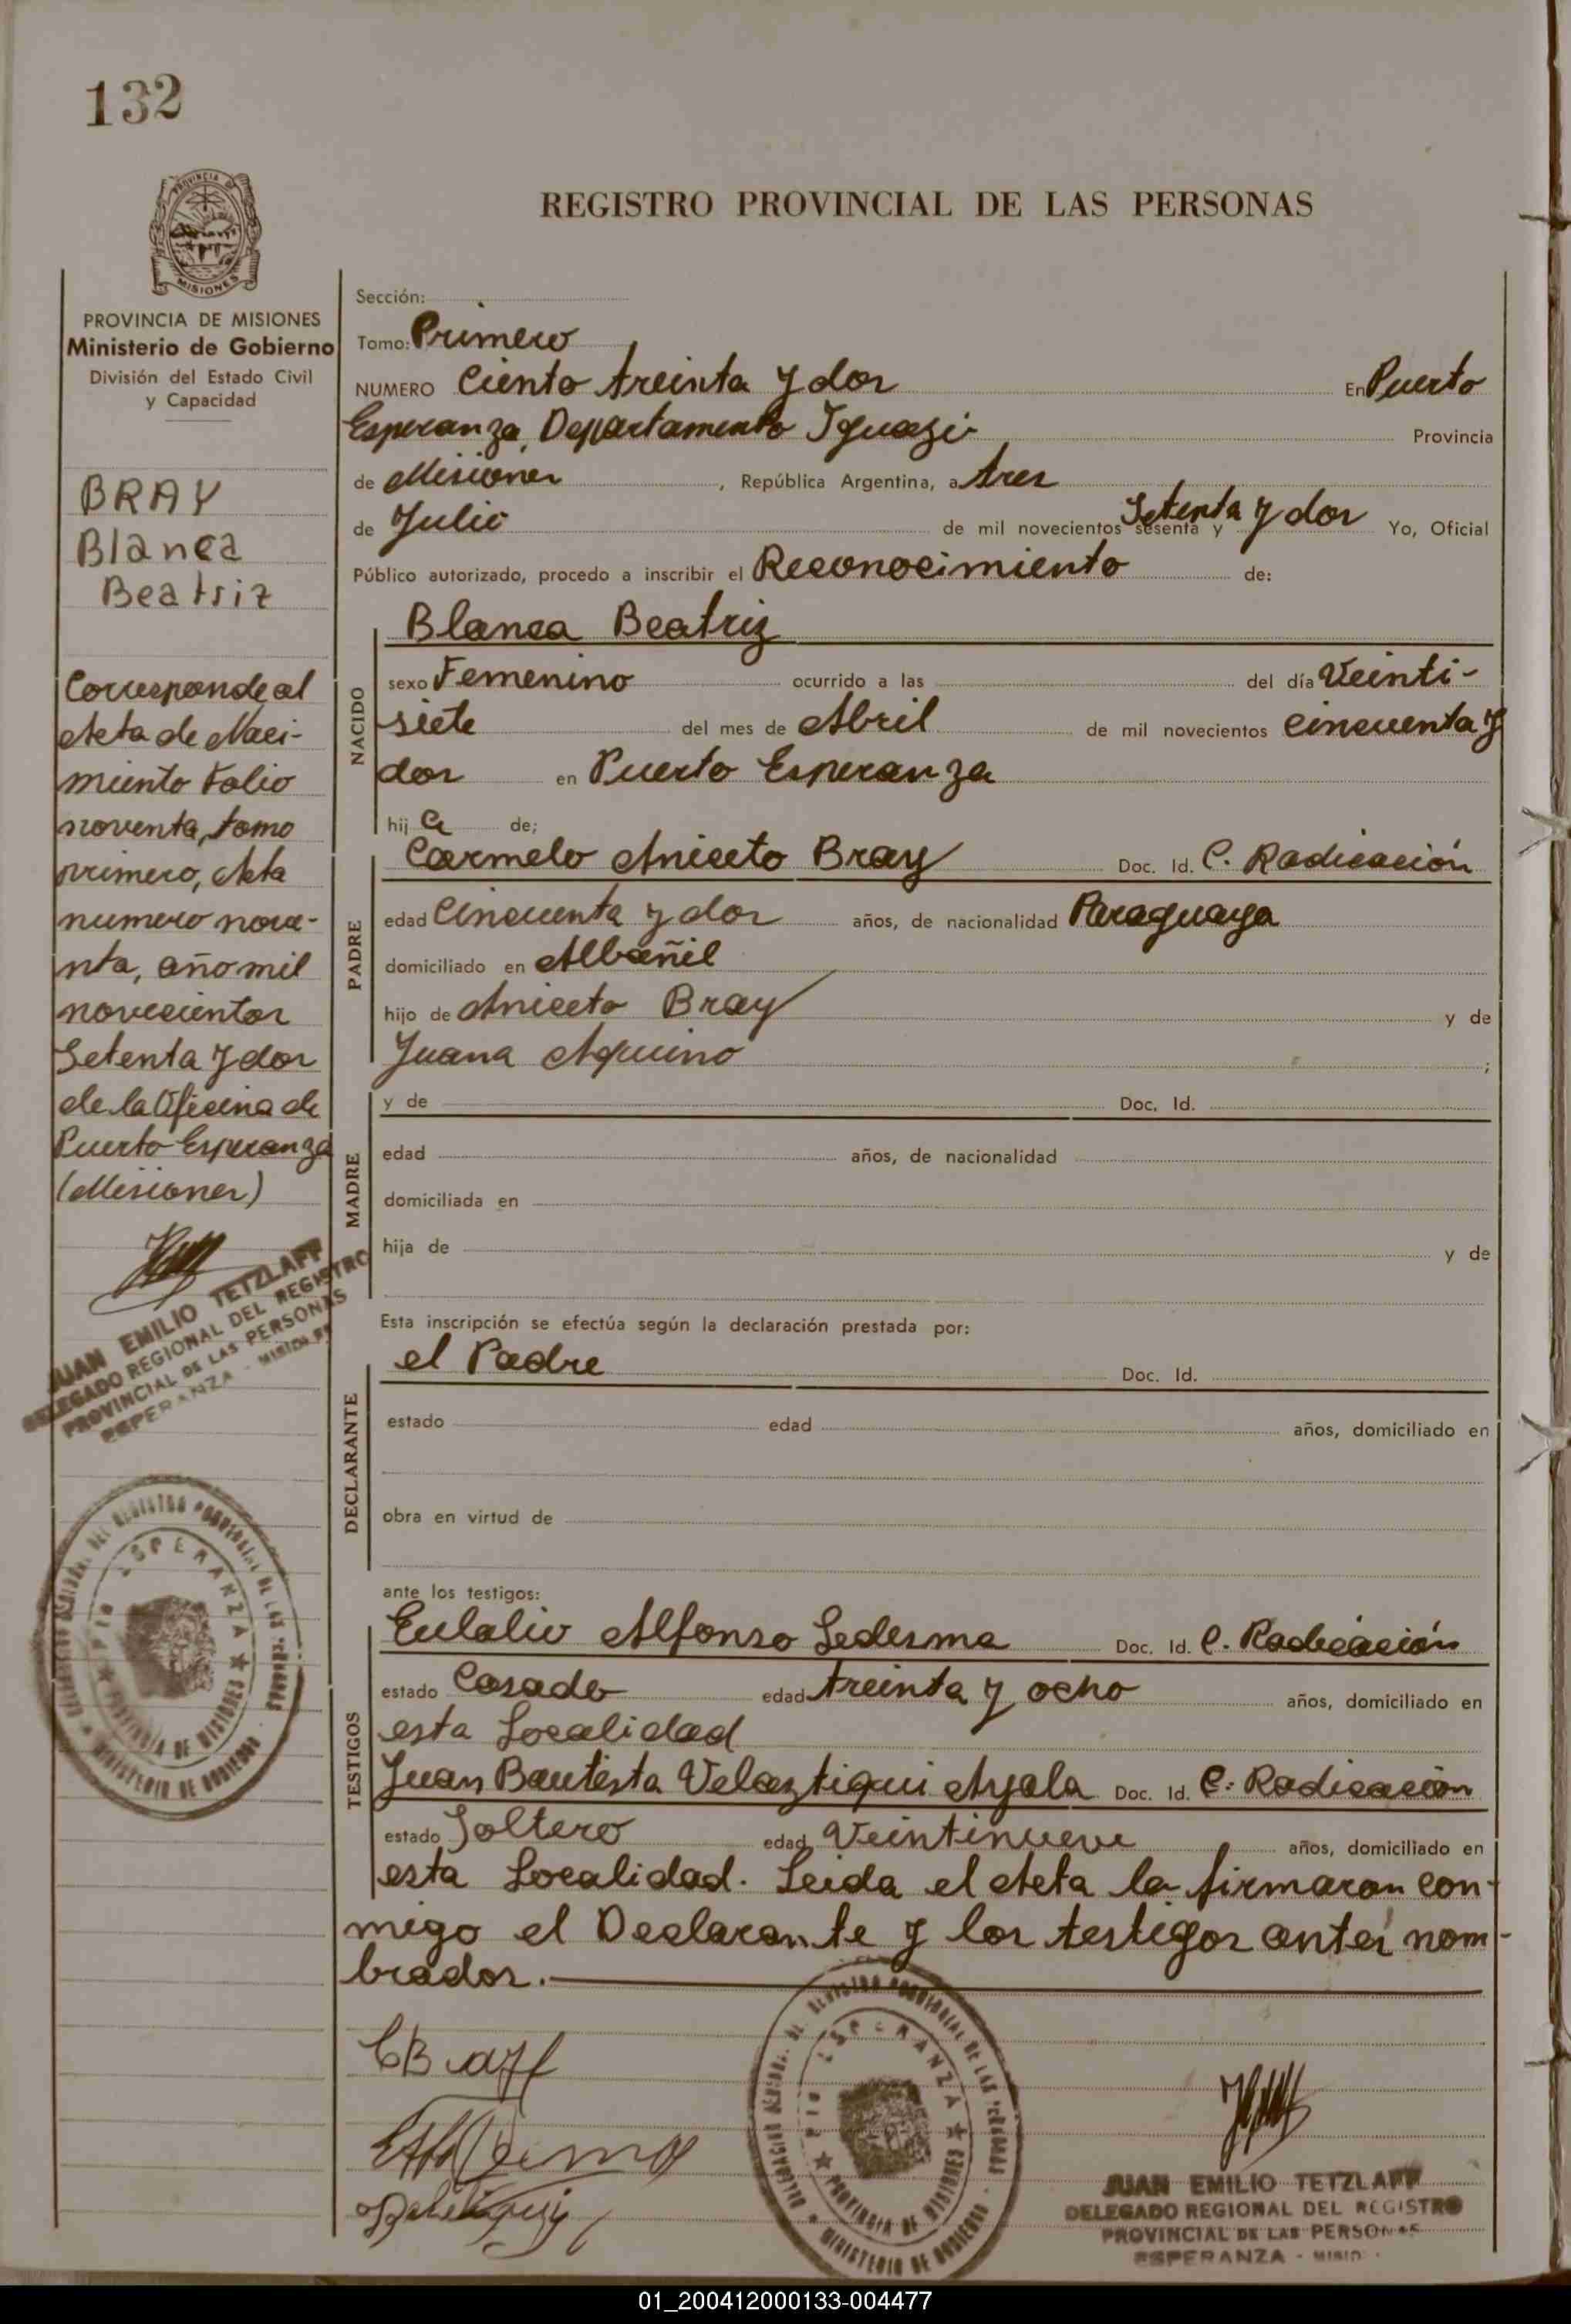 132
PROVINCIA DE
MISIONES
REGISTRO PROVINCIAL DE LAS PERSONAS
PROVINCIA DE MISIONES
Ministerio de Gobierno
División del Estado Civil
y Capacidad
BRAY
Blanca
Beatriz
Corresponde al
Acta de Naci-
miento Folio
noventa, tomo
primero, Acta
numero nove-
nta, año mil
novecientos
Setenta y dos
de la Oficina de
Puerto Esperanza
(Misiones)
JUAN EMILIO TETZLAFF
DELEGADO REGIONAL DEL REGISTRO
PROVINCIAL DE LAS PERSONAS
ESPERANZA - MISIONES
Sección:
Tomo: Primero
NUMERO Ciento treinta y dos En Puerto
Esperanza, Departamento Iguazú Provincia
de Misiones, República Argentina, a tres
de Julio de mil novecientos sesenta y Setenta y dos Yo, Oficial
Público autorizado, procedo a inscribir el Reconocimiento de:
NACIDO
Blanca Beatriz
sexo Femenino ocurrido a las del día Veinti-
siete del mes de Abril de mil novecientos cincuenta y
dos en Puerto Esperanza
hij a de;
PADRE
Carmelo Aniceto Bray Doc. Id. C. Radicación
edad Cincuenta y dos años, de nacionalidad Paraguaya
domiciliado en Albañil
hijo de Aniceto Bray y de
Juana Aquino ;
MADRE
y de Doc. Id.
edad años, de nacionalidad
domiciliada en
hija de y de
Esta inscripción se efectúa según la declaración prestada por:
DECLARANTE
el Padre Doc. Id.
estado edad años, domiciliado en
obra en virtud de
ante los testigos:
TESTIGOS
Eulalio Alfonso Ledesma Doc. Id. C. Radicación
estado Casado edad treinta y ocho años, domiciliado en
esta Localidad
Juan Bautista Velaztiqui Ayala Doc. Id. C. Radicación
estado Soltero edad Veintinueve años, domiciliado en
esta Localidad. Leida el Acta la firmaron con-
migo el Declarante y los testigos antes nom-
brados.
PTO ESPERANZA
PROVINCIA DE MISIONES
MINISTERIO DE GOBIERNO
JUAN EMILIO TETZLAFF
DELEGADO REGIONAL DEL REGISTRO
PROVINCIAL DE LAS PERSONAS
ESPERANZA - MISIO
01_200412000133-004477